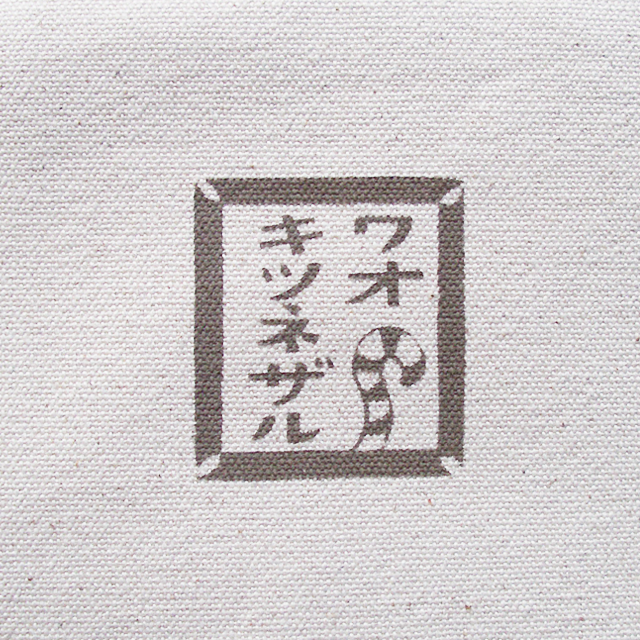 ワオ
キツネザル